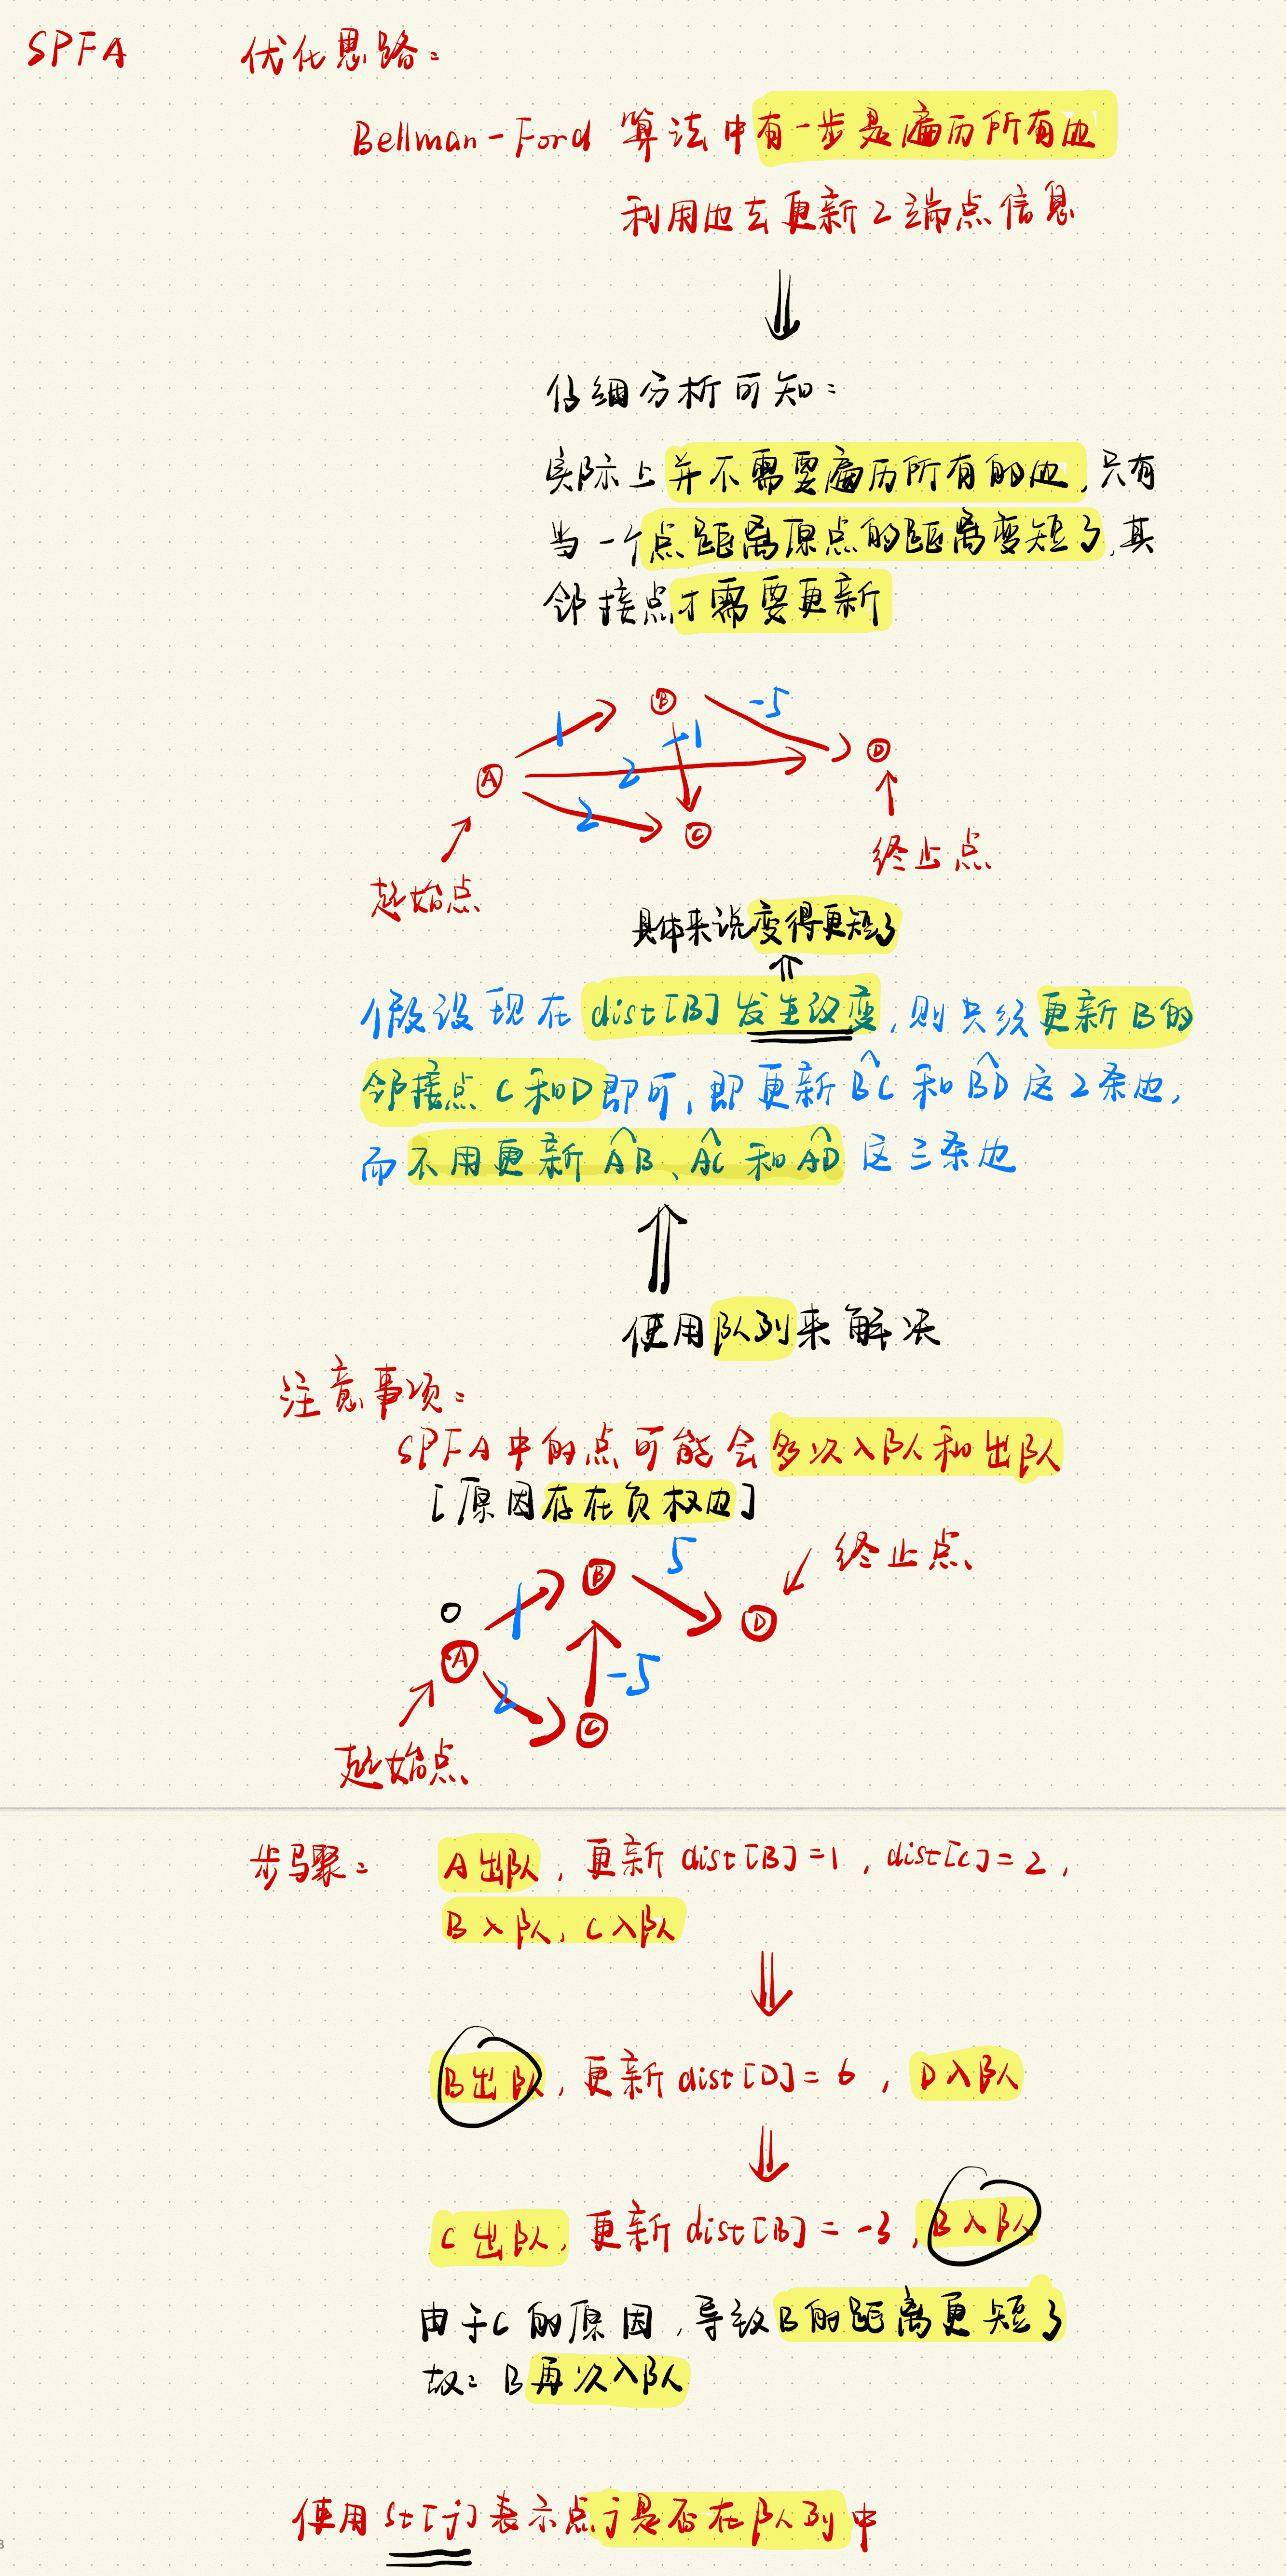 SPFA 优化思路:
Bellman-Ford 算法中有一步是遍历所有边
利用边去更新2端点信息
仔细分析可知:
实际上并不需要遍历所有的边,只有
当一个点距离原点的距离变短了,其
邻接点才需要更新
B -5
1 -1 D
A 2
2 C
终止点
起始点
具体来说变得更短了
假设现在dist[B]发生改变,则只须更新B的
邻接点C和D即可,即更新BC和BD这2条边,
而不用更新AB、AC和AD这三条边
使用队列来解决
注意事项:
SPFA中的点可能会多次入队和出队
[原因存在负权边]
终止点
B 5
0 1 D
A
2 -5
C
起始点
步骤: A出队,更新dist[B]=1,dist[C]=2,
B入队,C入队
B出队,更新dist[D]=6,D入队
C出队,更新dist[B]=-3,B入队
由于C的原因,导致B的距离更短了
故:B再次入队
使用st[j]表示点j是否在队列中
3